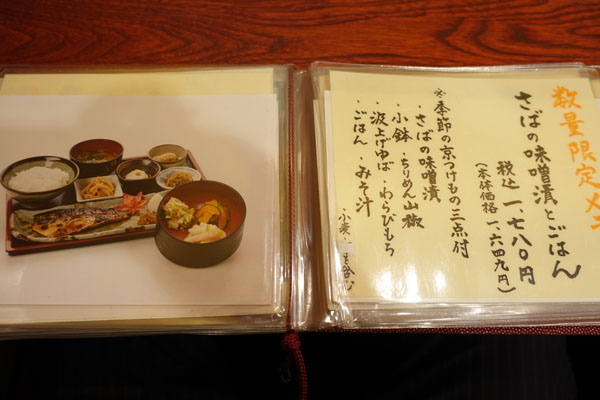 数量限定メニ
さばの味噌漬とごはん
税込 一、七八〇円
(本体価格 一、六四九円)
※季節の京つけもの三点付
・さばの味噌漬
・小鉢・ちりめん山椒
・汲上げゆば・わらびもち
・ごはん・みそ汁
小麦